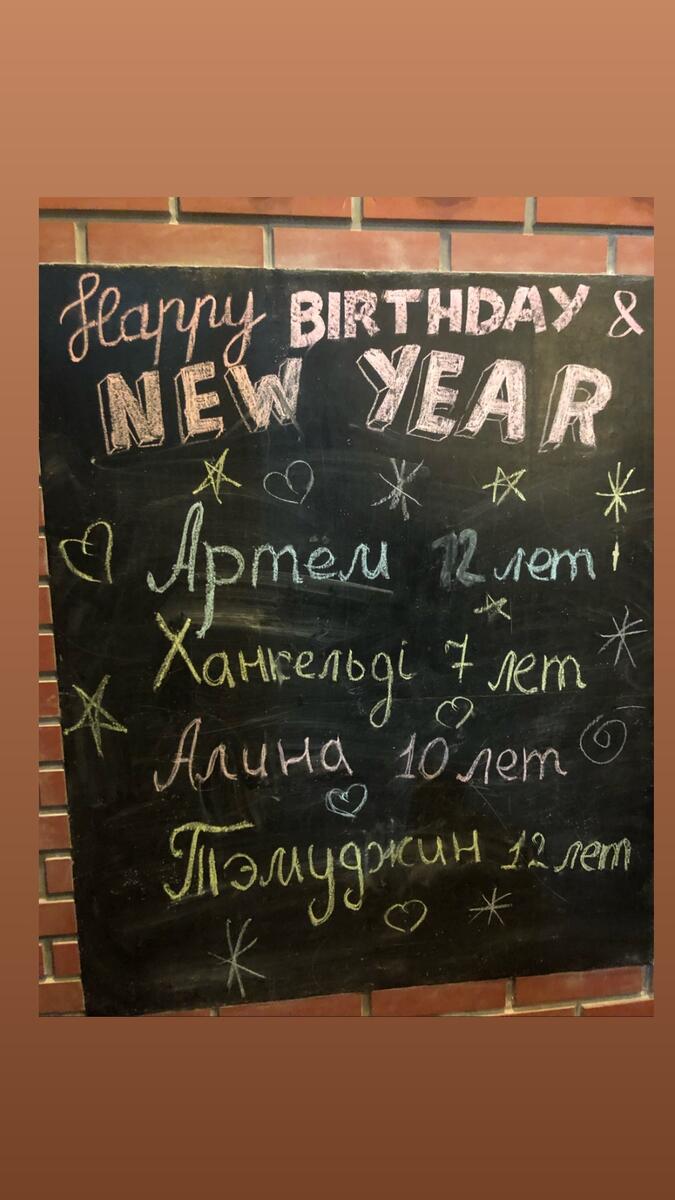 Happy BIRTHDAY &
NEW YEAR
Артём 12 лет
Ханкельді 7 лет
Алина 10 лет
Тэмуджин 12 лет